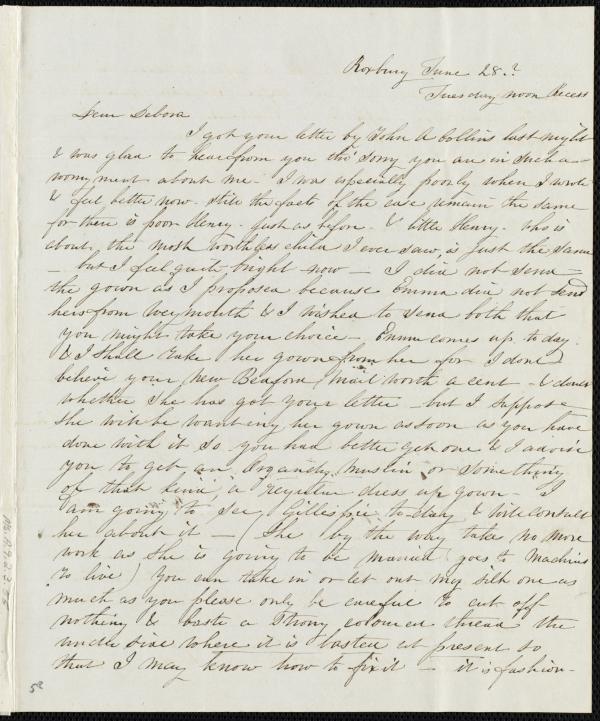 Roxbury June 28.?
Tuesday noon Recess
Dear Debora
I got your letter by John A Collins last night
& was glad to hear from you tho' sorry you are in such a
worryment about me - I was especially poorly when I wrote
& feel better now - still the facts of the case remain the same
for there is poor Henry - just as before - & little Henry - who is
about the most worthless child I ever saw is just the same
- but I feel quite bright now - I did not send
the gown as I proposed because Emma did not send
hers from Weymouth & I wished to send both that
you might take your choice - Emma comes up to day
& I shall take her gown from her for I dont
believe your New Bedford mail worth a cent - &
whether she has got your letter - but I suppose
she will be wanting her gown as soon as you have
done with it so you had better get one & I advise
you to get an Organdy muslin or something
of that kind, a regular dress up gown - I
am going to see Gillespie to-day & will consult
her about it - (She by the way take no more
work as she is going to be married goes to Machias
to live) You can take in or let out my silk one as
much as you please only be careful to cut off
nothing & baste a strong coloured thread the
under side where it is basted at present so
that I may know how to fix it - it is fashion-
58